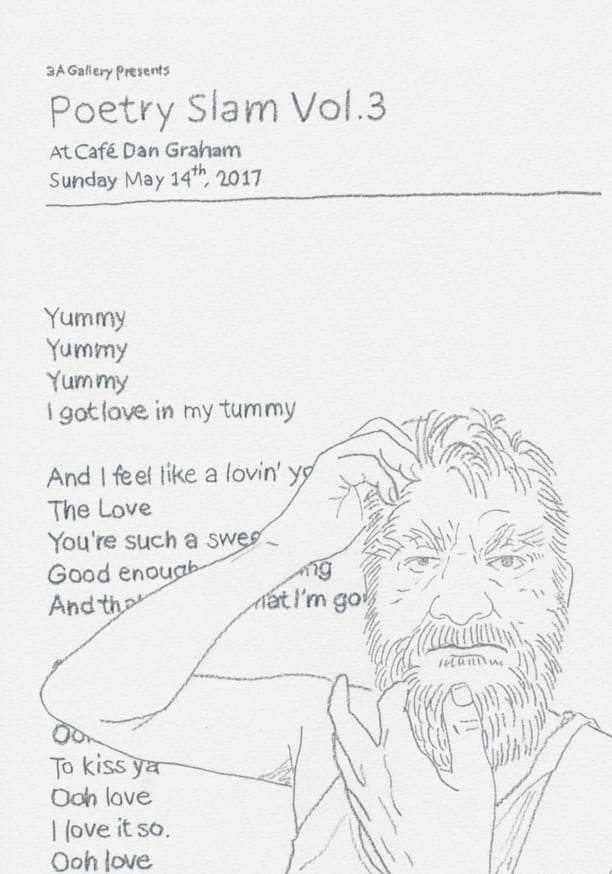 3A Gallery Presents
Poetry Slam Vol.3
At Café Dan Graham
Sunday May 14th, 2017
Yummy
Yummy
Yummy
I got love in my tummy
And I feel like a lovin'
The Love
You're such a
Good
I'm
To kiss ya
Ooh love
I love it so.
Ooh love